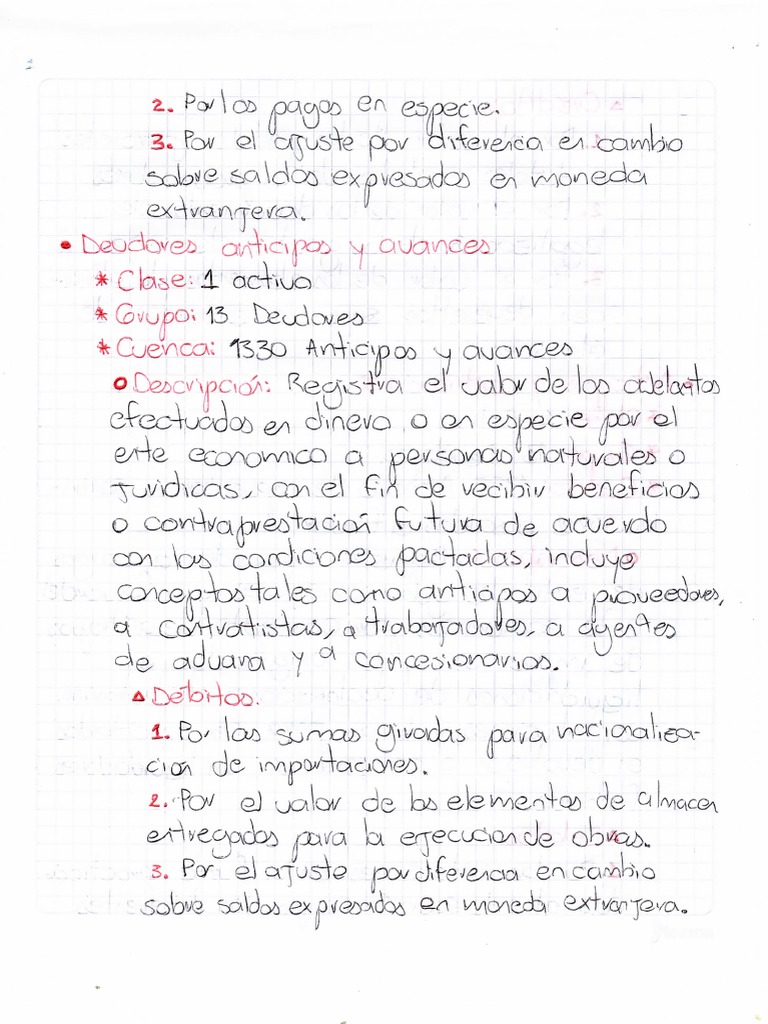 2. Por los pagos en especie.
3. Por el ajuste por diferencia en cambio
sobre saldos expresados en moneda
extranjera.
• Deudores anticipos y avances
* Clase: 1 activo
* Grupo: 13 Deudores
* Cuenca: 1330 Anticipos y avances
o Descripción: Registra el valor de los adelantos
efectuados en dinero o en especie por el
ente economico a personas naturales o
juridicas, con el fin de recibir beneficios
o contraprestación futura de acuerdo
con las condiciones pactadas, incluye
conceptos tales como anticipos a proveedores,
a contratistas, a trabajadores, a agentes
de aduana y a concesionarios.
△ Débitos.
1. Por las sumas giradas para nacionaliza-
ción de importaciones.
2. Por el valor de los elementos de almacen
entregados para la ejecucion de obras.
3. Por el ajuste por diferencia en cambio
sobre saldos expresados en moneda extranjera.